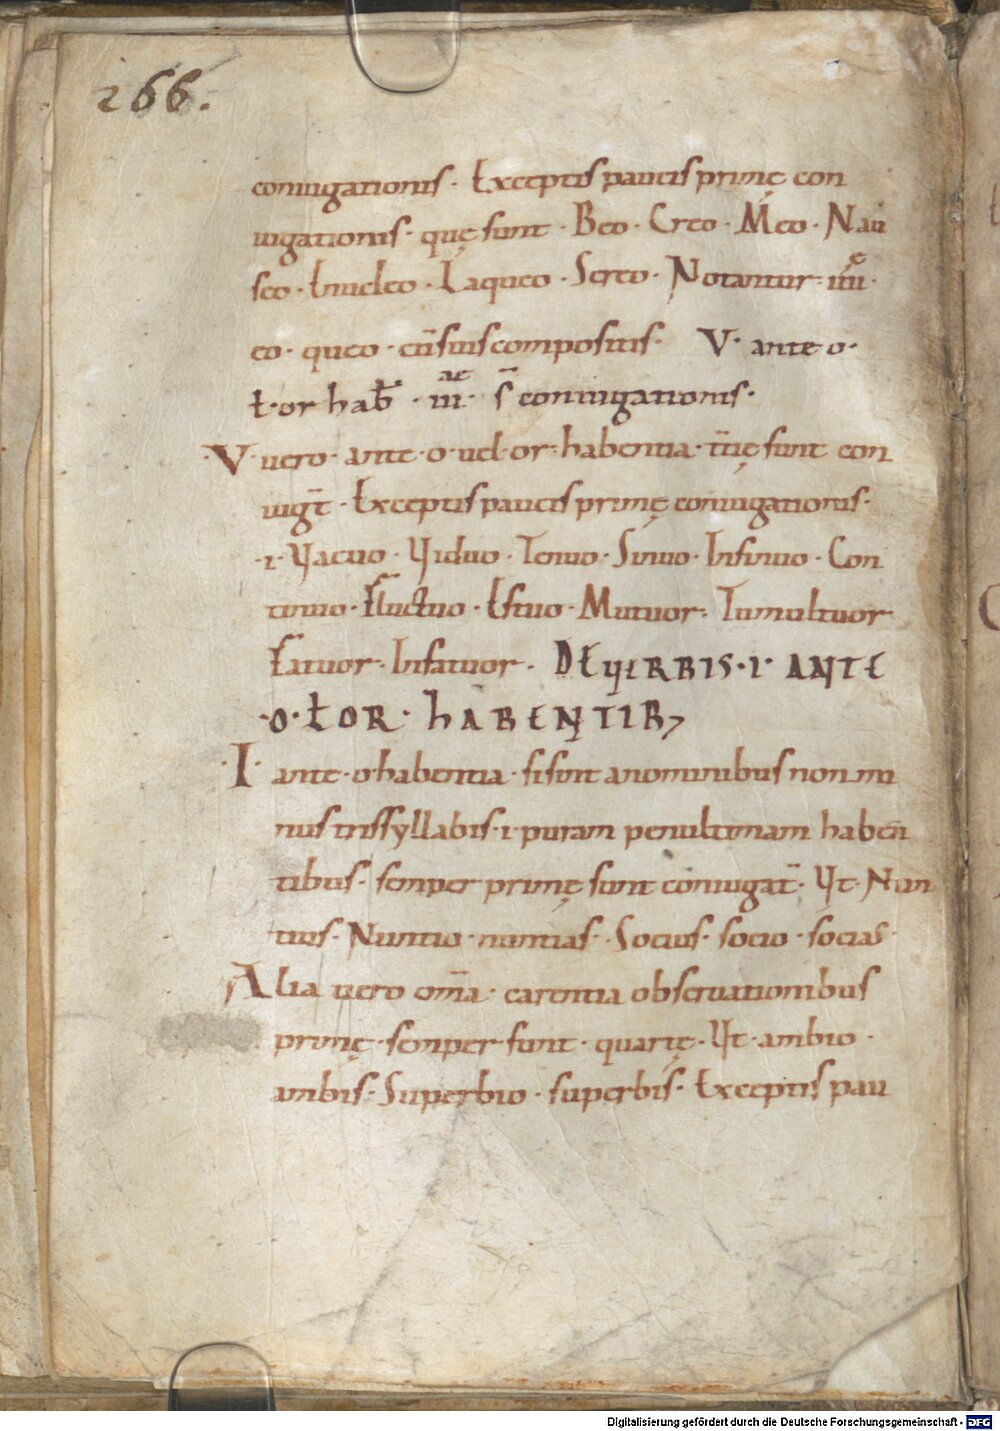 266.
coniugationis · Exceptis paucis primę con
iugationis · quę sunt · Beo · Creo · Meo · Nau
seo · Enucleo · Laqueo · Screo · Notantur · iiii^e ·
eo · queo · cū suis compositis · V · ante o ·
Ł · or hab̄ · iii^ae · s̄ coniugationis ·
· V · uero · ante · o · uel · or · habentia · t̄iię sunt con
iugt̄ · Exceptis paucis primę coniugationis ·
· i · Vacuo · Viduo · Tenuo · Sinuo · Insinuo · Con
tinuo · Fluctuo · Estuo · Mutuor · Tumultuor
Fatuor · Infatuor · DE VERBIS · I · ANTE
· O · Ł OR · HABENTIB;
· I · ante · o · habentia · si sint a nominibus non mi
nus trissyllabis · i · puram penultimam haben
tibus · semper primę sunt coniugat̄ · Vt · Nun
tius · Nuntio · nuntias · Socius · socio · socias ·
Alia uero om̄a · carentia obseruationibus
primę · semper · sunt · quartę · Vt · ambio ·
ambis · Superbio · superbis · Exceptis pau
Digitalisierung gefördert durch die Deutsche Forschungsgemeinschaft - DFG